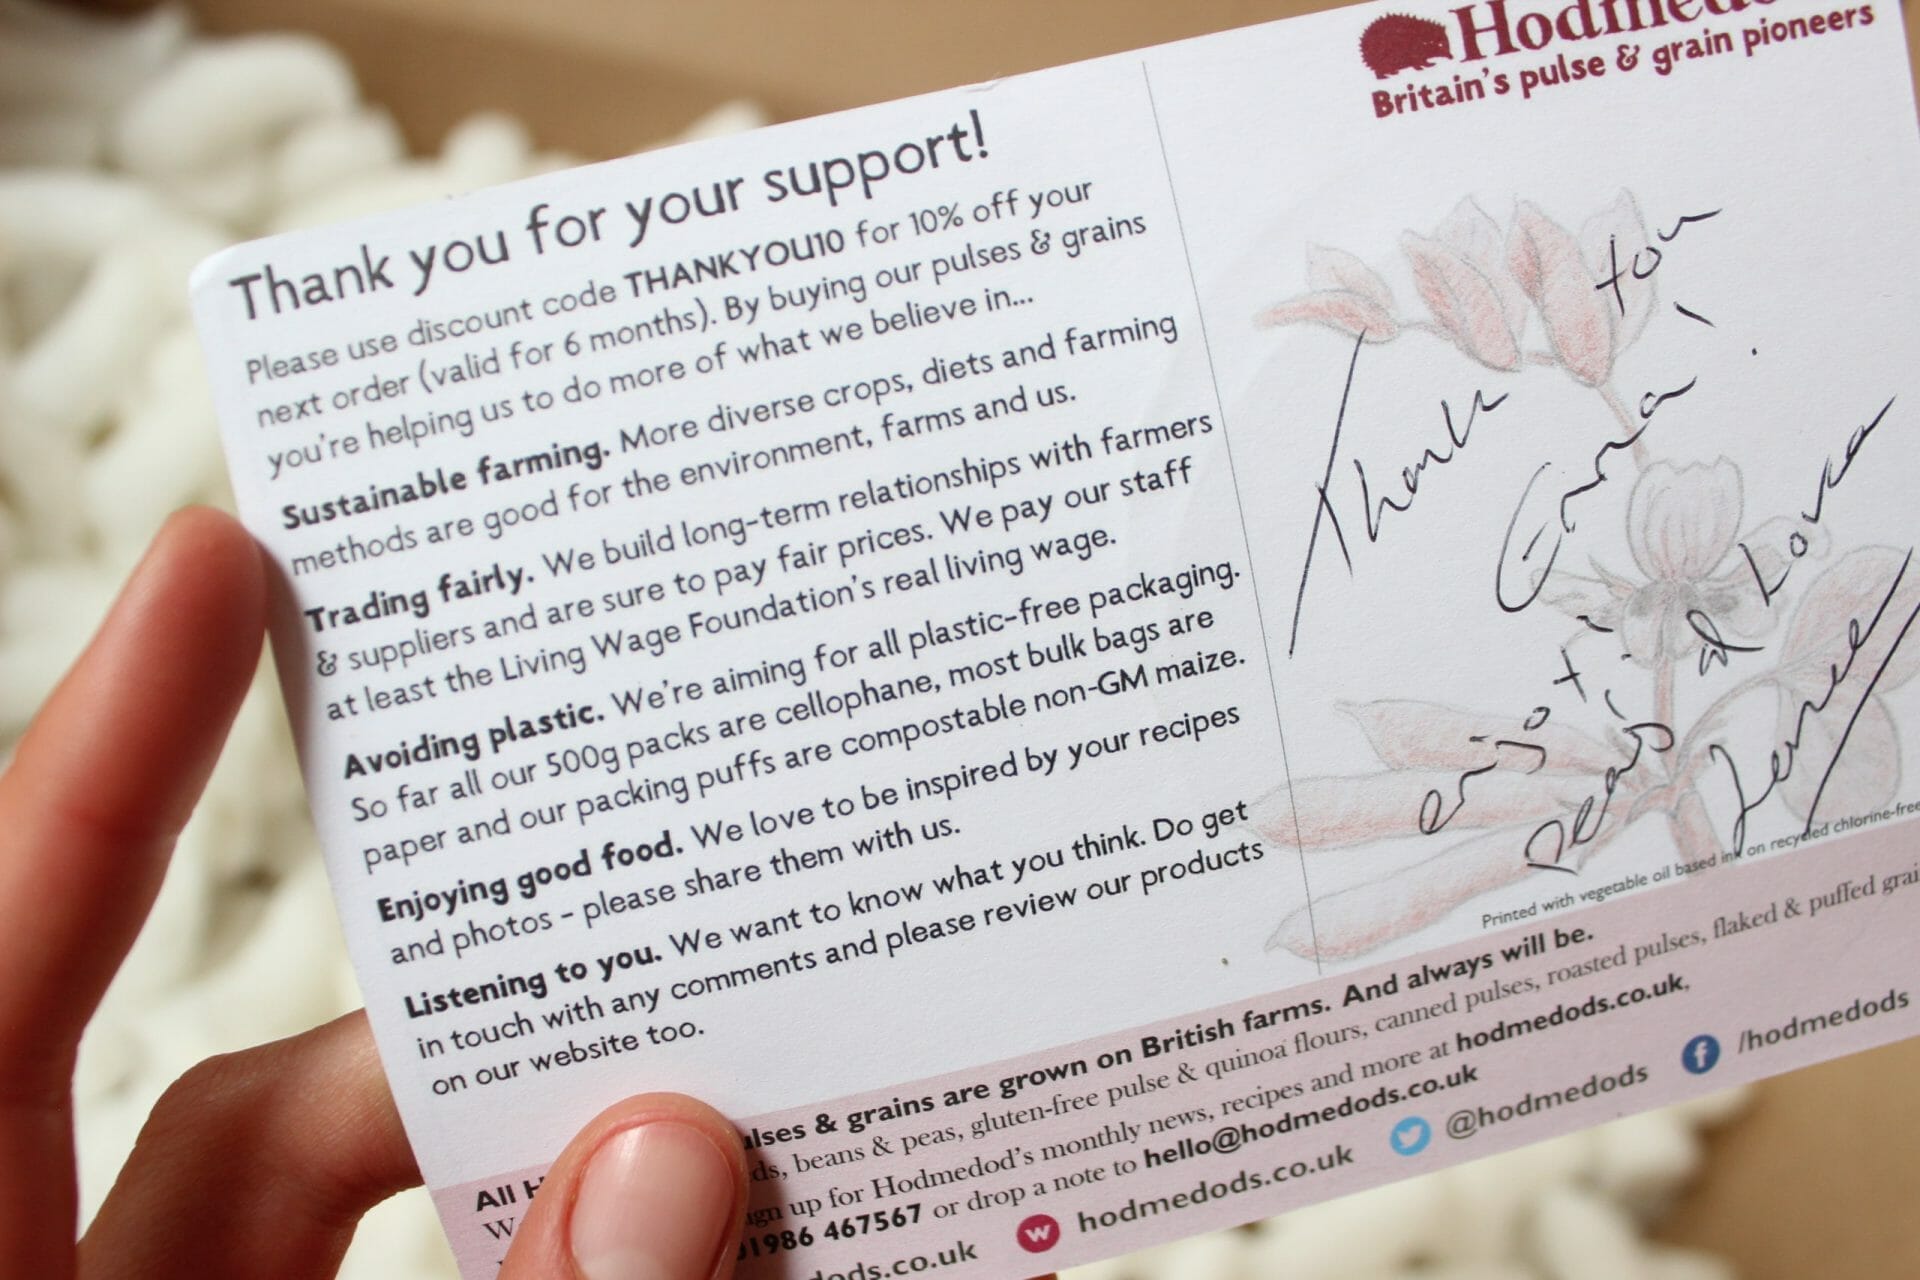 Thank you for your support!
Please use discount code THANKYOU10 for 10% off your
next order (valid for 6 months). By buying our pulses & grains
you're helping us to do more of what we believe in...
Sustainable farming. More diverse crops, diets and farming
methods are good for the environment, farms and us.
Trading fairly. We build long-term relationships with farmers
& suppliers and are sure to pay fair prices. We pay our staff
at least the Living Wage Foundation's real living wage.
Avoiding plastic. We're aiming for all plastic-free packaging.
So far all our 500g packs are cellophane, most bulk bags are
paper and our packing puffs are compostable non-GM maize.
Enjoying good food. We love to be inspired by your recipes
and photos - please share them with us.
Listening to you. We want to know what you think. Do get
in touch with any comments and please review our products
on our website too.
Britain's pulse & grain pioneers
Thank you
enjoy the
peas
Printed with vegetable oil based ink on recycled chlorine-free
All & grains are grown on British farms. And always will be.
beans & peas, gluten-free pulse & quinoa flours, canned pulses, roasted pulses, flaked & puffed
up for Hodmedod's monthly news, recipes and more at hodmedods.co.uk,
01986 467567 or drop a note to hello@hodmedods.co.uk
hodmedods.co.uk @hodmedods /hodmedods